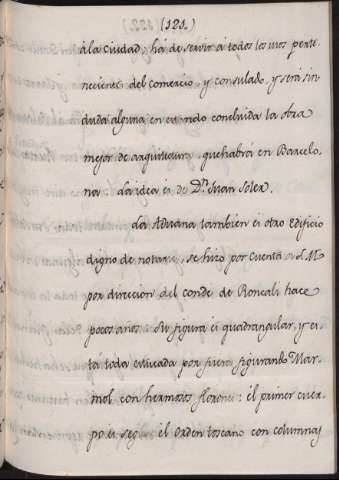 (121.)
à la ciudad, há de servir á todos los usos perte-
necientes del comercio, y consulado, y será sin
duda alguna en estando concluida la obra
mejor de arquitectura, que habrá en Barcelo-
na: la idea es de Dⁿ Juan Soler.
La Aduana tambien es otro Edificio
digno de notarse, se hizo por cuenta de S.M
por direccion del conde de Roncali hace
pocos años: Su figura es quadrangular, y es-
tá toda estucada por fuera figurando Mar-
mol con hermosos florones: él primer cuer-
po es segun él Orden toscano con columnas